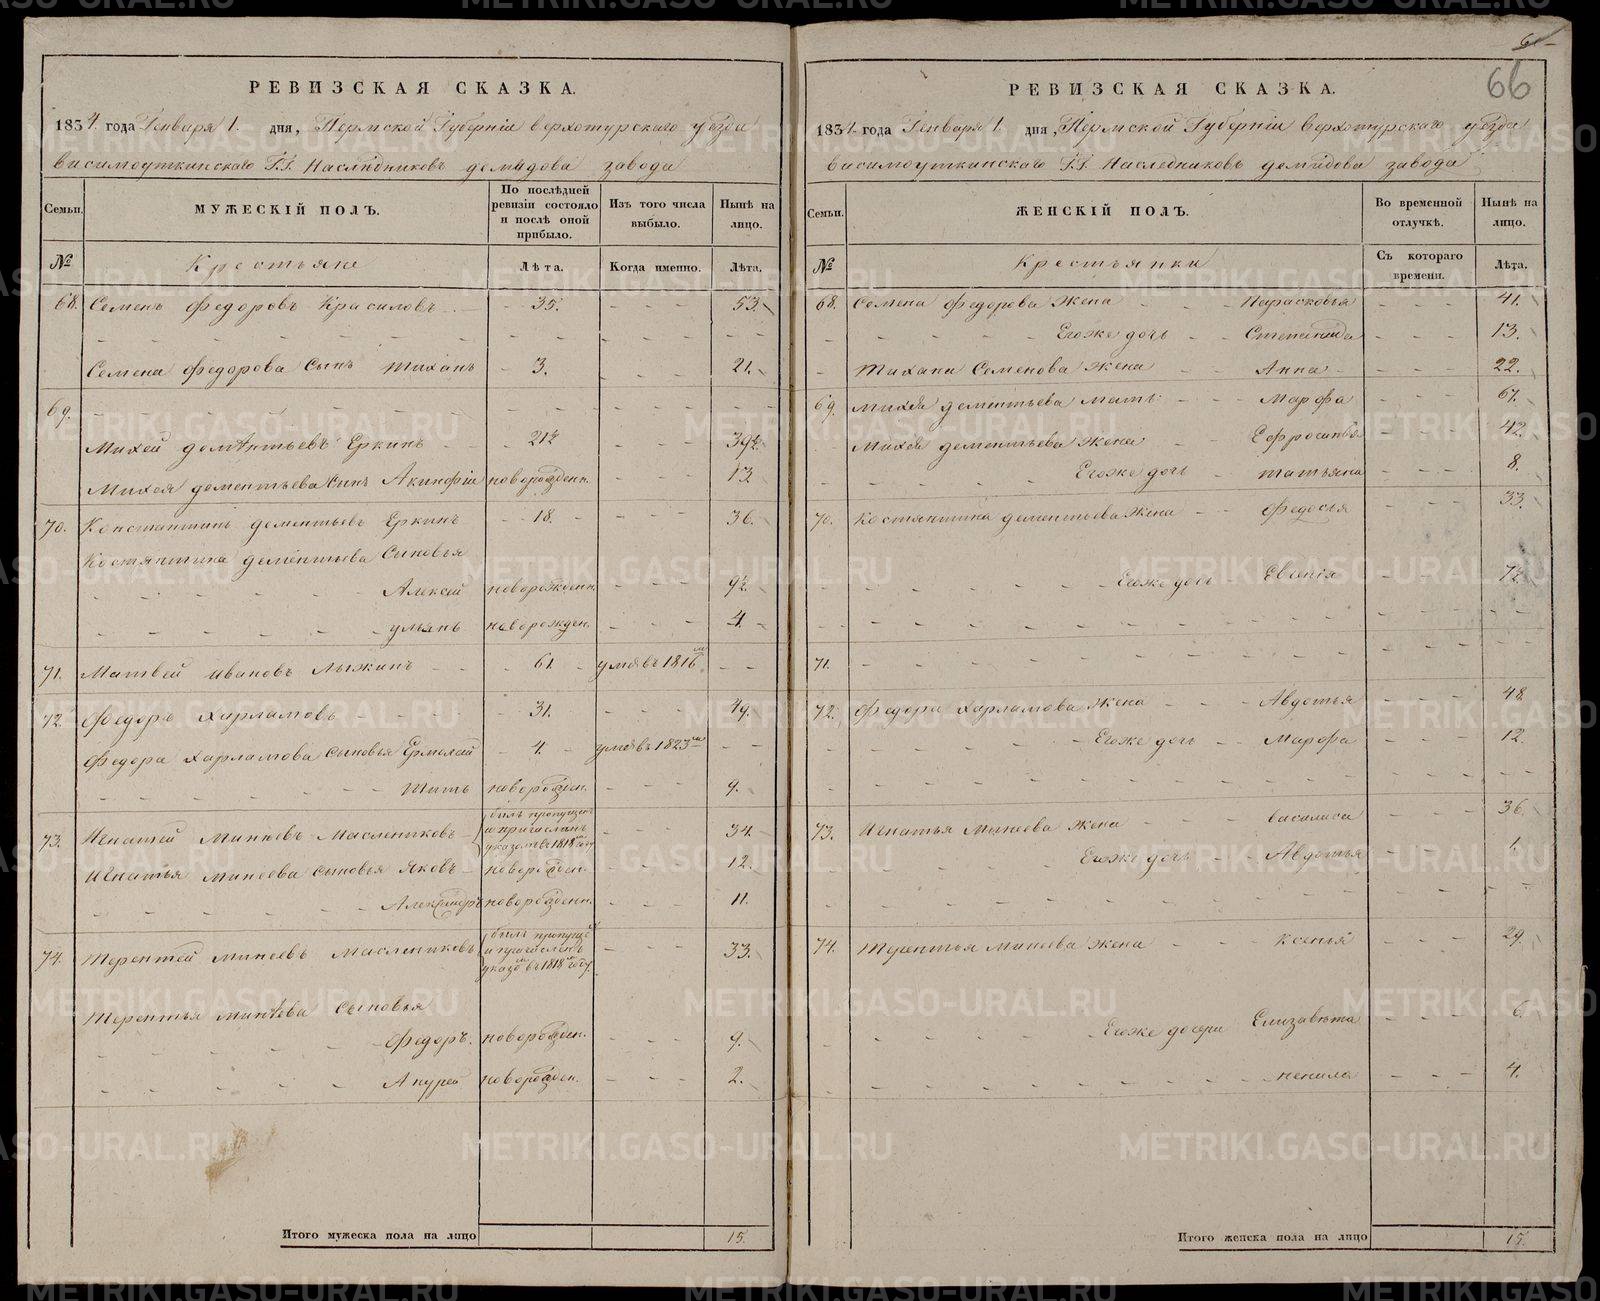 66
РЕВИЗСКАЯ СКАЗКА.
1834. года Генваря 1. дня, Пермской Губерніи верхотурскаго уѣзда
висимоуткинскаго Г.Г. Наслѣдниковъ демидова завода
Семьи. МУЖЕСКІЙ ПОЛЪ. По послѣдней ревизіи состояло и послѣ оной прибыло. Изъ того числа выбыло. Нынѣ на лицо.
№ Крестьяне Лѣта. Когда именно. Лѣта.
68. Семенъ федоровъ Красиловъ 35. 53.
Семена федорова Сынъ тиханъ 3. 21.
69.
Михей деминтьевъ Еркинъ 21½ 39½
Михея дементьева Сынъ Акинфій новорожденн. 13
70. Константинъ дементьевъ Еркинъ 18. 36.
Костянтина дементьева Сыновья
Алексей новорожденн. 9½
ульянъ новорожден. 4.
71. Матвей ивановъ лыжинъ 61. умѣ въ 1816м
72. федоръ харламовъ 31. 49.
федора харламова сыновья Ермолай 4. умѣ въ 1823м
Титъ новорожден. 9.
73. Игнатей Минѣевъ Маслениковъ былъ пропущенъ и причисленъ указомъ въ 1818м году 34.
Игнатья минеева сыновья Яковъ новорожден. 12.
Александръ новорожденн. 11.
74. терентей минеевъ маслениковъ былъ пропущенъ и причисленъ указомъ въ 1818м году. 33.
терентья минѣева Сыновья
федоръ. новорожден. 9.
Андрей новорожден. 2.
Итого мужеска пола на лицо 15.
РЕВИЗСКАЯ СКАЗКА.
1834. года Генваря 1. дня, Пермской Губерніи верхотурскаго уѣзда
висимоуткинскаго Г.Г. Наследниковъ демидова завода
Семьи. ЖЕНСКІЙ ПОЛЪ. Во временной отлучкѣ. Нынѣ на лицо.
№ Крестьянки Съ котораго времени. Лѣта.
68. Семена федорова жена Парасковья 41.
Егоже дочь Степанида 13.
тихана Семенова жена Анна 22.
69. михея дементьева мать Марфа 67.
михея дементьева жена Ефросинья 42.
Егоже дочь татьяна 8.
70. Костянтина дементьева жена федосья 33.
Егоже дочь Евгенія 7½
71.
72. федора харламова жена Авдотья 48.
Егоже дочь Марфа 12.
73. Игнатья Минеева жена василиса 36.
Егоже дочь Авдотья 1.
74. терентья минеева жена ксенья 29.
Егоже дочери Елизавѣта 6.
ненила 4.
Итого женска пола на лицо 15.
METRIKI.GASO-URAL.RU